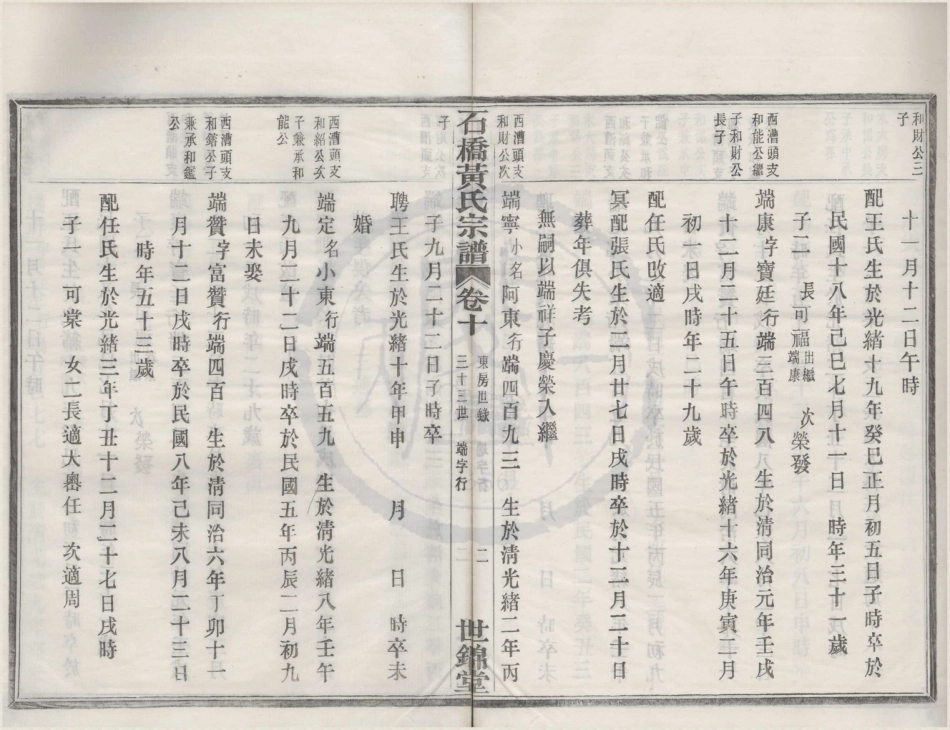 和財公三
子
十一月十二日午時
配王氏生於光緒十九年癸巳正月初五日子時卒於
民國十八年己巳七月十一日 時年三十八歲
子一 長可福出繼端康 次榮發
西漕頭支
和能公繼
子和財公
長子
端康字寶廷行端三百四八 生於清同治元年壬戌
十二月二十五日午時卒於光緒十六年庚寅二月
初一日戌時年二十九歲
配任氏改適
冥配張氏生於二月廿七日戌時卒於十二月三十日
葬年俱失考
無嗣以端祥子慶榮入繼
西漕頭支
和財公次
子
端寧小名阿東行端四百九三 生於清光緒二年丙
子九月二十二日子時卒
聘王氏生於光緒十年甲申 月 日 時卒未
婚
石橋黃氏宗譜
卷十
東房世錄
三十三世 端字行
二
世錦堂
西漕頭支
和紹公次
子兼承和
能公
端定名小東行端五百五九 生於清光緒八年壬午
九月二十二日戌時卒於民國五年丙辰二月初九
日未娶
西漕頭支
和鎔公子
兼承和鑑
公
端贊字富贊行端四百 生於清同治六年丁卯十一
月十二日戌時卒於民國八年己未八月二十三日
時年五十三歲
配任氏生於光緒三年丁丑十二月二十七日戌時
子一可棠 女二長適大嶴任 次適周